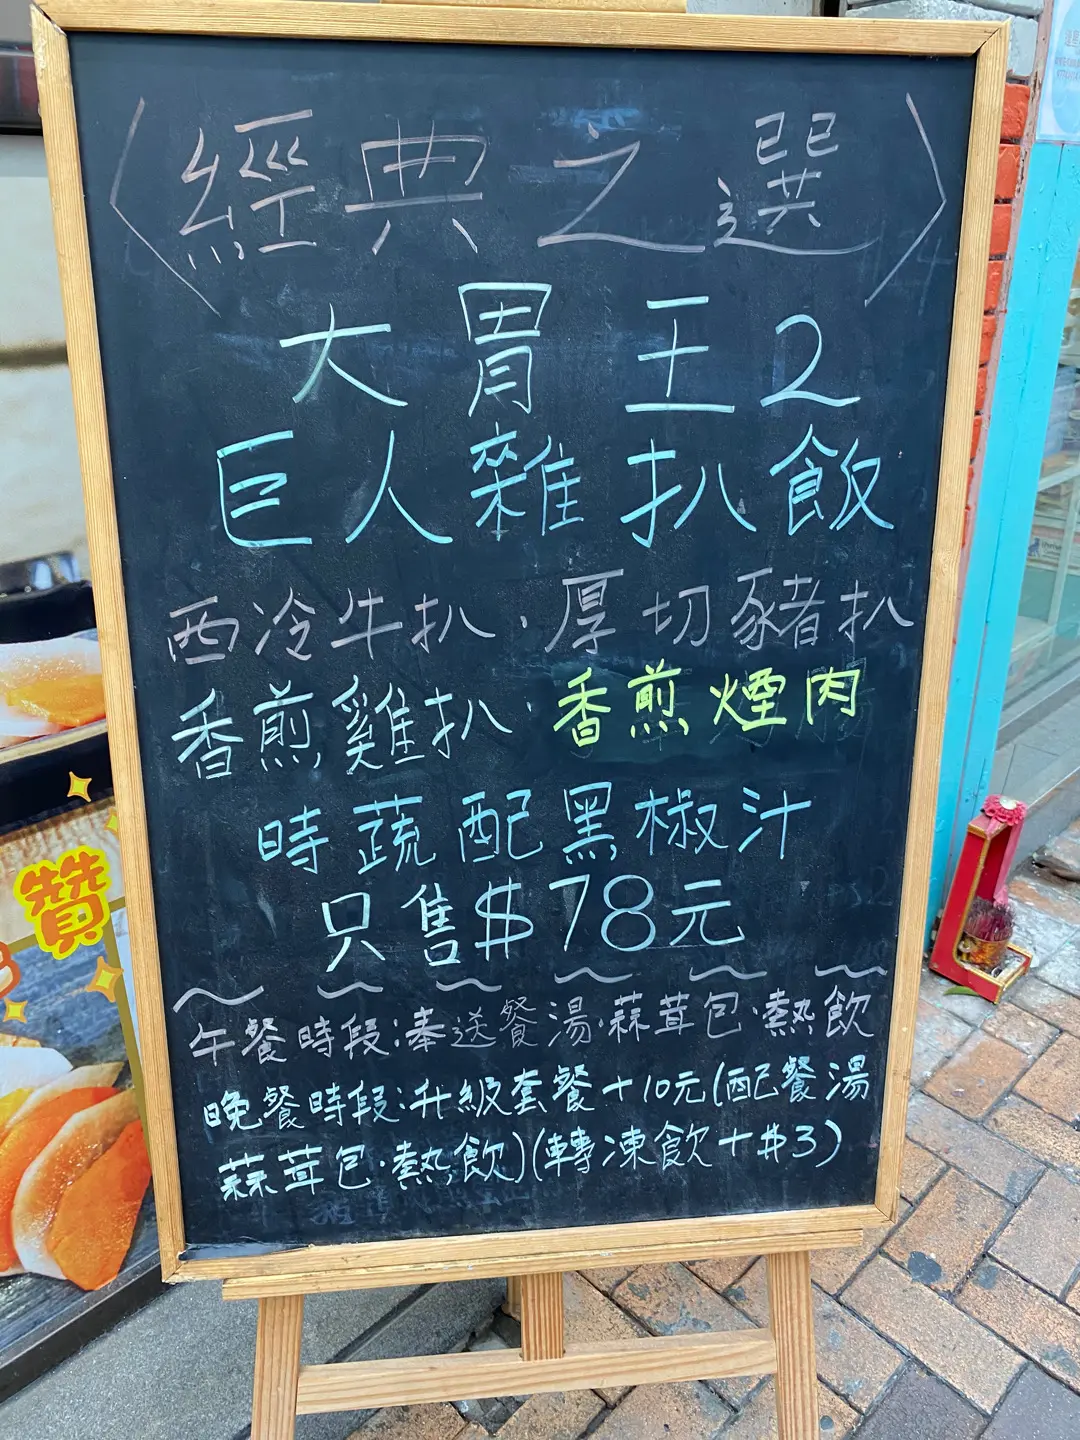 〈經典之選〉
大胃王2
巨人雜扒飯
西冷牛扒·厚切豬扒
香煎雞扒·香煎煙肉
時蔬配黑椒汁
只售$78元
午餐時段:奉送餐湯·蒜茸包·熱飲
晚餐時段:升級套餐+10元(配餐湯
蒜茸包·熱飲)(轉凍飲+$3)
贊